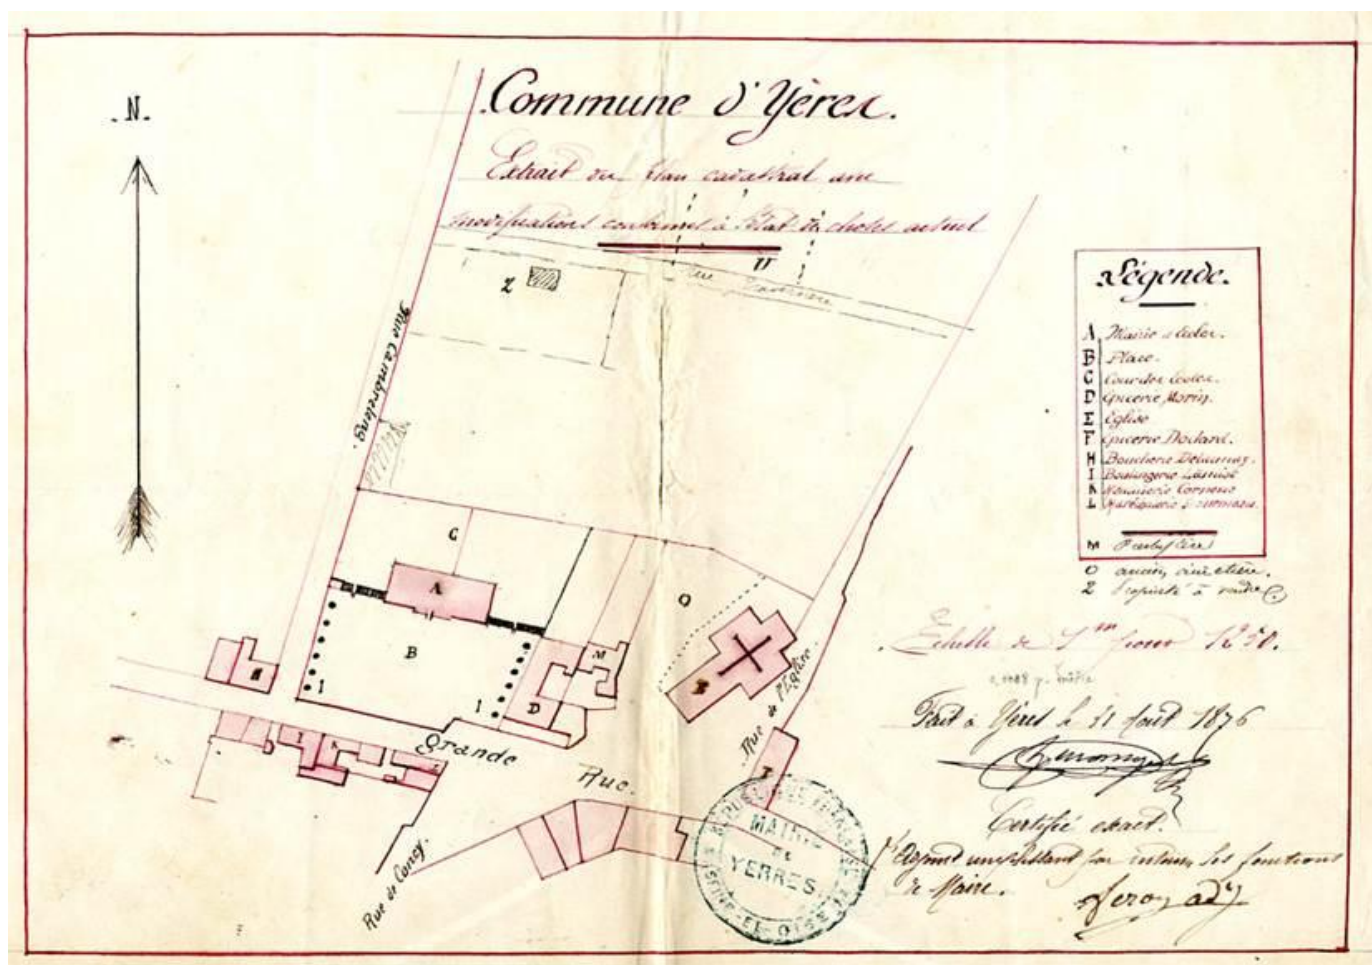 N.
Commune d'Yères.
Extrait du Plan cadastral avec
modifications conformes à l'état de choses actuel
Z
U
Rue
Rue Cambrelang.
C
A
B
O
M
D
E
H
1
1
Grande
Rue.
I
K
L
Rue de l'Eglise.
F
Rue de Concy.
Légende.
A Mairie et écoles.
B Place.
C Cour des écoles.
D Epicerie Morin.
E Eglise
F Epicerie Dodard.
H Boucherie Delaunay.
I Boulangerie
K
L
M Presbytère
O ancien cimetière.
Z Propriété à vendre
Echelle de 1m pour 1250.
p. mètre
Fait à Yères le 31 Août 1876
Certifié exact.
l'Adjoint remplissant par intérim les fonctions
de Maire.
Leroy adj
REPUBLIQUE FRANÇAISE
MAIRIE
DE
YERRES.
SEINE-ET-OISE